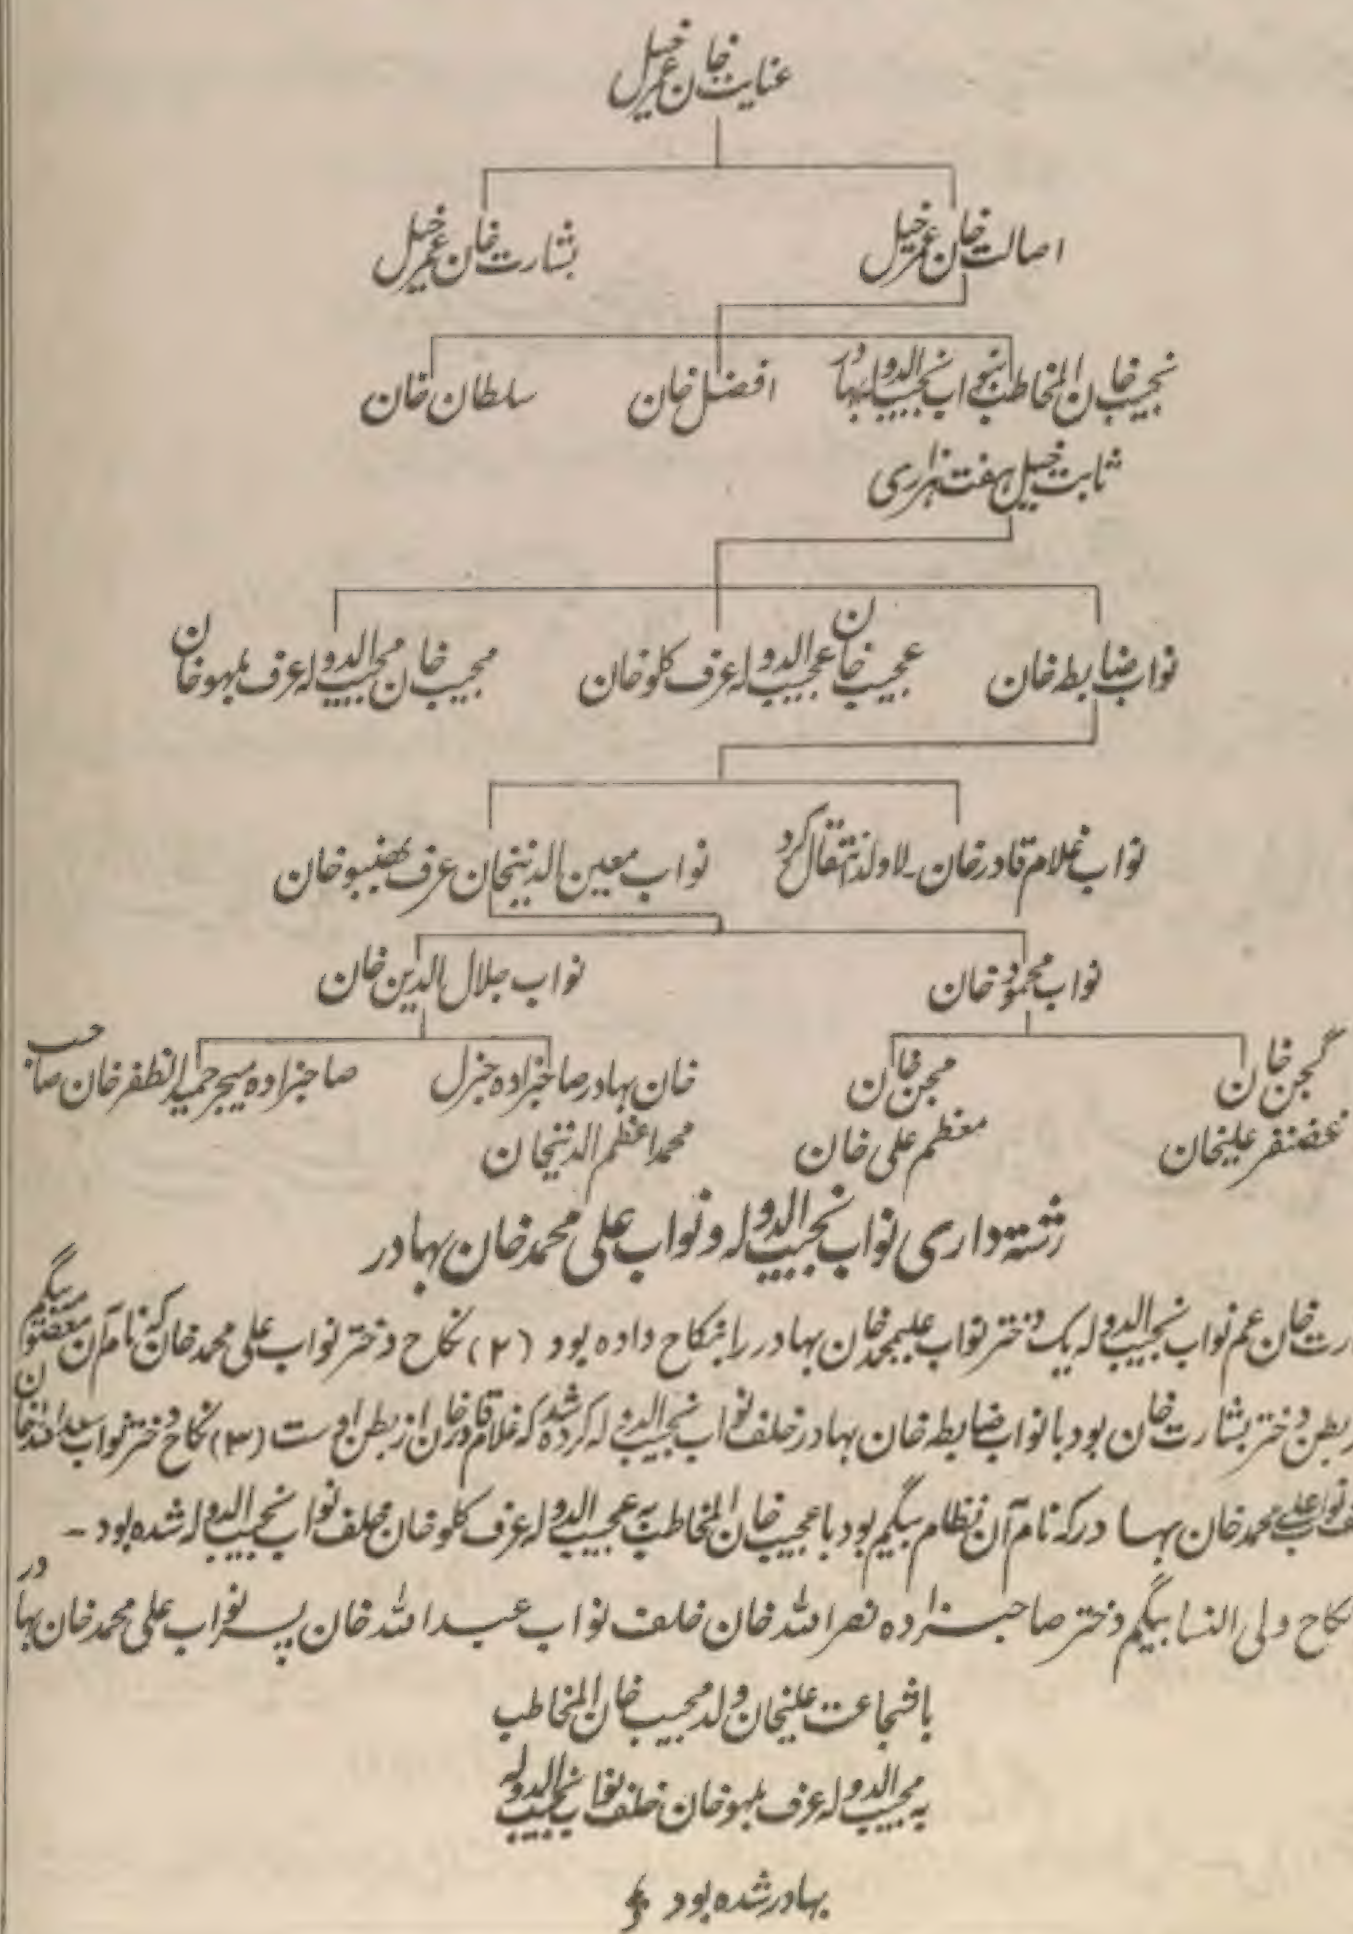 عنایت خان عمر خیل
اصالت خان عمر خیل
بشارت خان عمر خیل
نجیب خان المخاطب بنواب نجیب الدوله بهادر
افضل خان
سلطان خان
ثابت خیل هفت هزاری
نواب ضابطه خان
عجیب خان عجیب الدوله عرف کلو خان
مجیب خان مجیب الدوله عرف ملهو خان
نواب غلام قادر خان - لا ولد انتقال کرد
نواب معین الدینخان عرف بھنبو خان
نواب محمود خان
نواب جلال الدین خان
گجن خان
مجن خان
خان بهادر صاحبزاده جنرل
صاحبزاده میجر حمید الظفر خان صاحب
غضنفر علیخان
معظم علی خان
محمد اعظم الدینخان
رشته داری نواب نجیب الدوله و نواب علی محمد خان بهادر
رت خان عم نواب نجیب الدوله یک دختر نواب علیمحمد خان بهادر را بنکاح داده بود (۲) نکاح دختر نواب علی محمد خان که نام آن بیگم
بطن دختر بشارت خان بود با نواب ضابطه خان بهادر خلف نواب نجیب الدوله کرده شد که غلام قادر خان از بطن اوست (۳) نکاح دختر نواب سعد الله خان
نواب علی محمد خان بهادر که نام آن نظام بیگم بود با عجیب خان المخاطب به عجیب الدوله عرف کلو خان خلف نواب نجیب الدوله شده بود -
نکاح ولی النسا بیگم دختر صاحبزاده نصر الله خان خلف نواب عبد الله خان پسر نواب علی محمد خان بهادر
با شجاعت علیخان ولد مجیب خان المخاطب
به مجیب الدوله عرف ملهو خان خلف نواب نجیب الدوله
بهادر شده بود